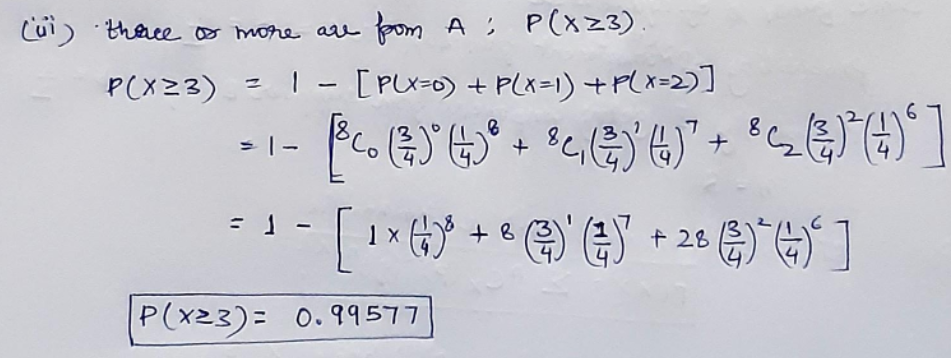 (iii) theree or more are from A ; P(X≥3).
P(X≥3) = 1 - [P(X=0) + P(X=1) + P(X=2)]
= 1 - [⁸C₀ (3/4)⁰ (1/4)⁸ + ⁸C₁ (3/4)¹ (1/4)⁷ + ⁸C₂ (3/4)² (1/4)⁶]
= 1 - [1 × (1/4)⁸ + 8 (3/4)¹ (1/4)⁷ + 28 (3/4)² (1/4)⁶]
P(X≥3) = 0.99577